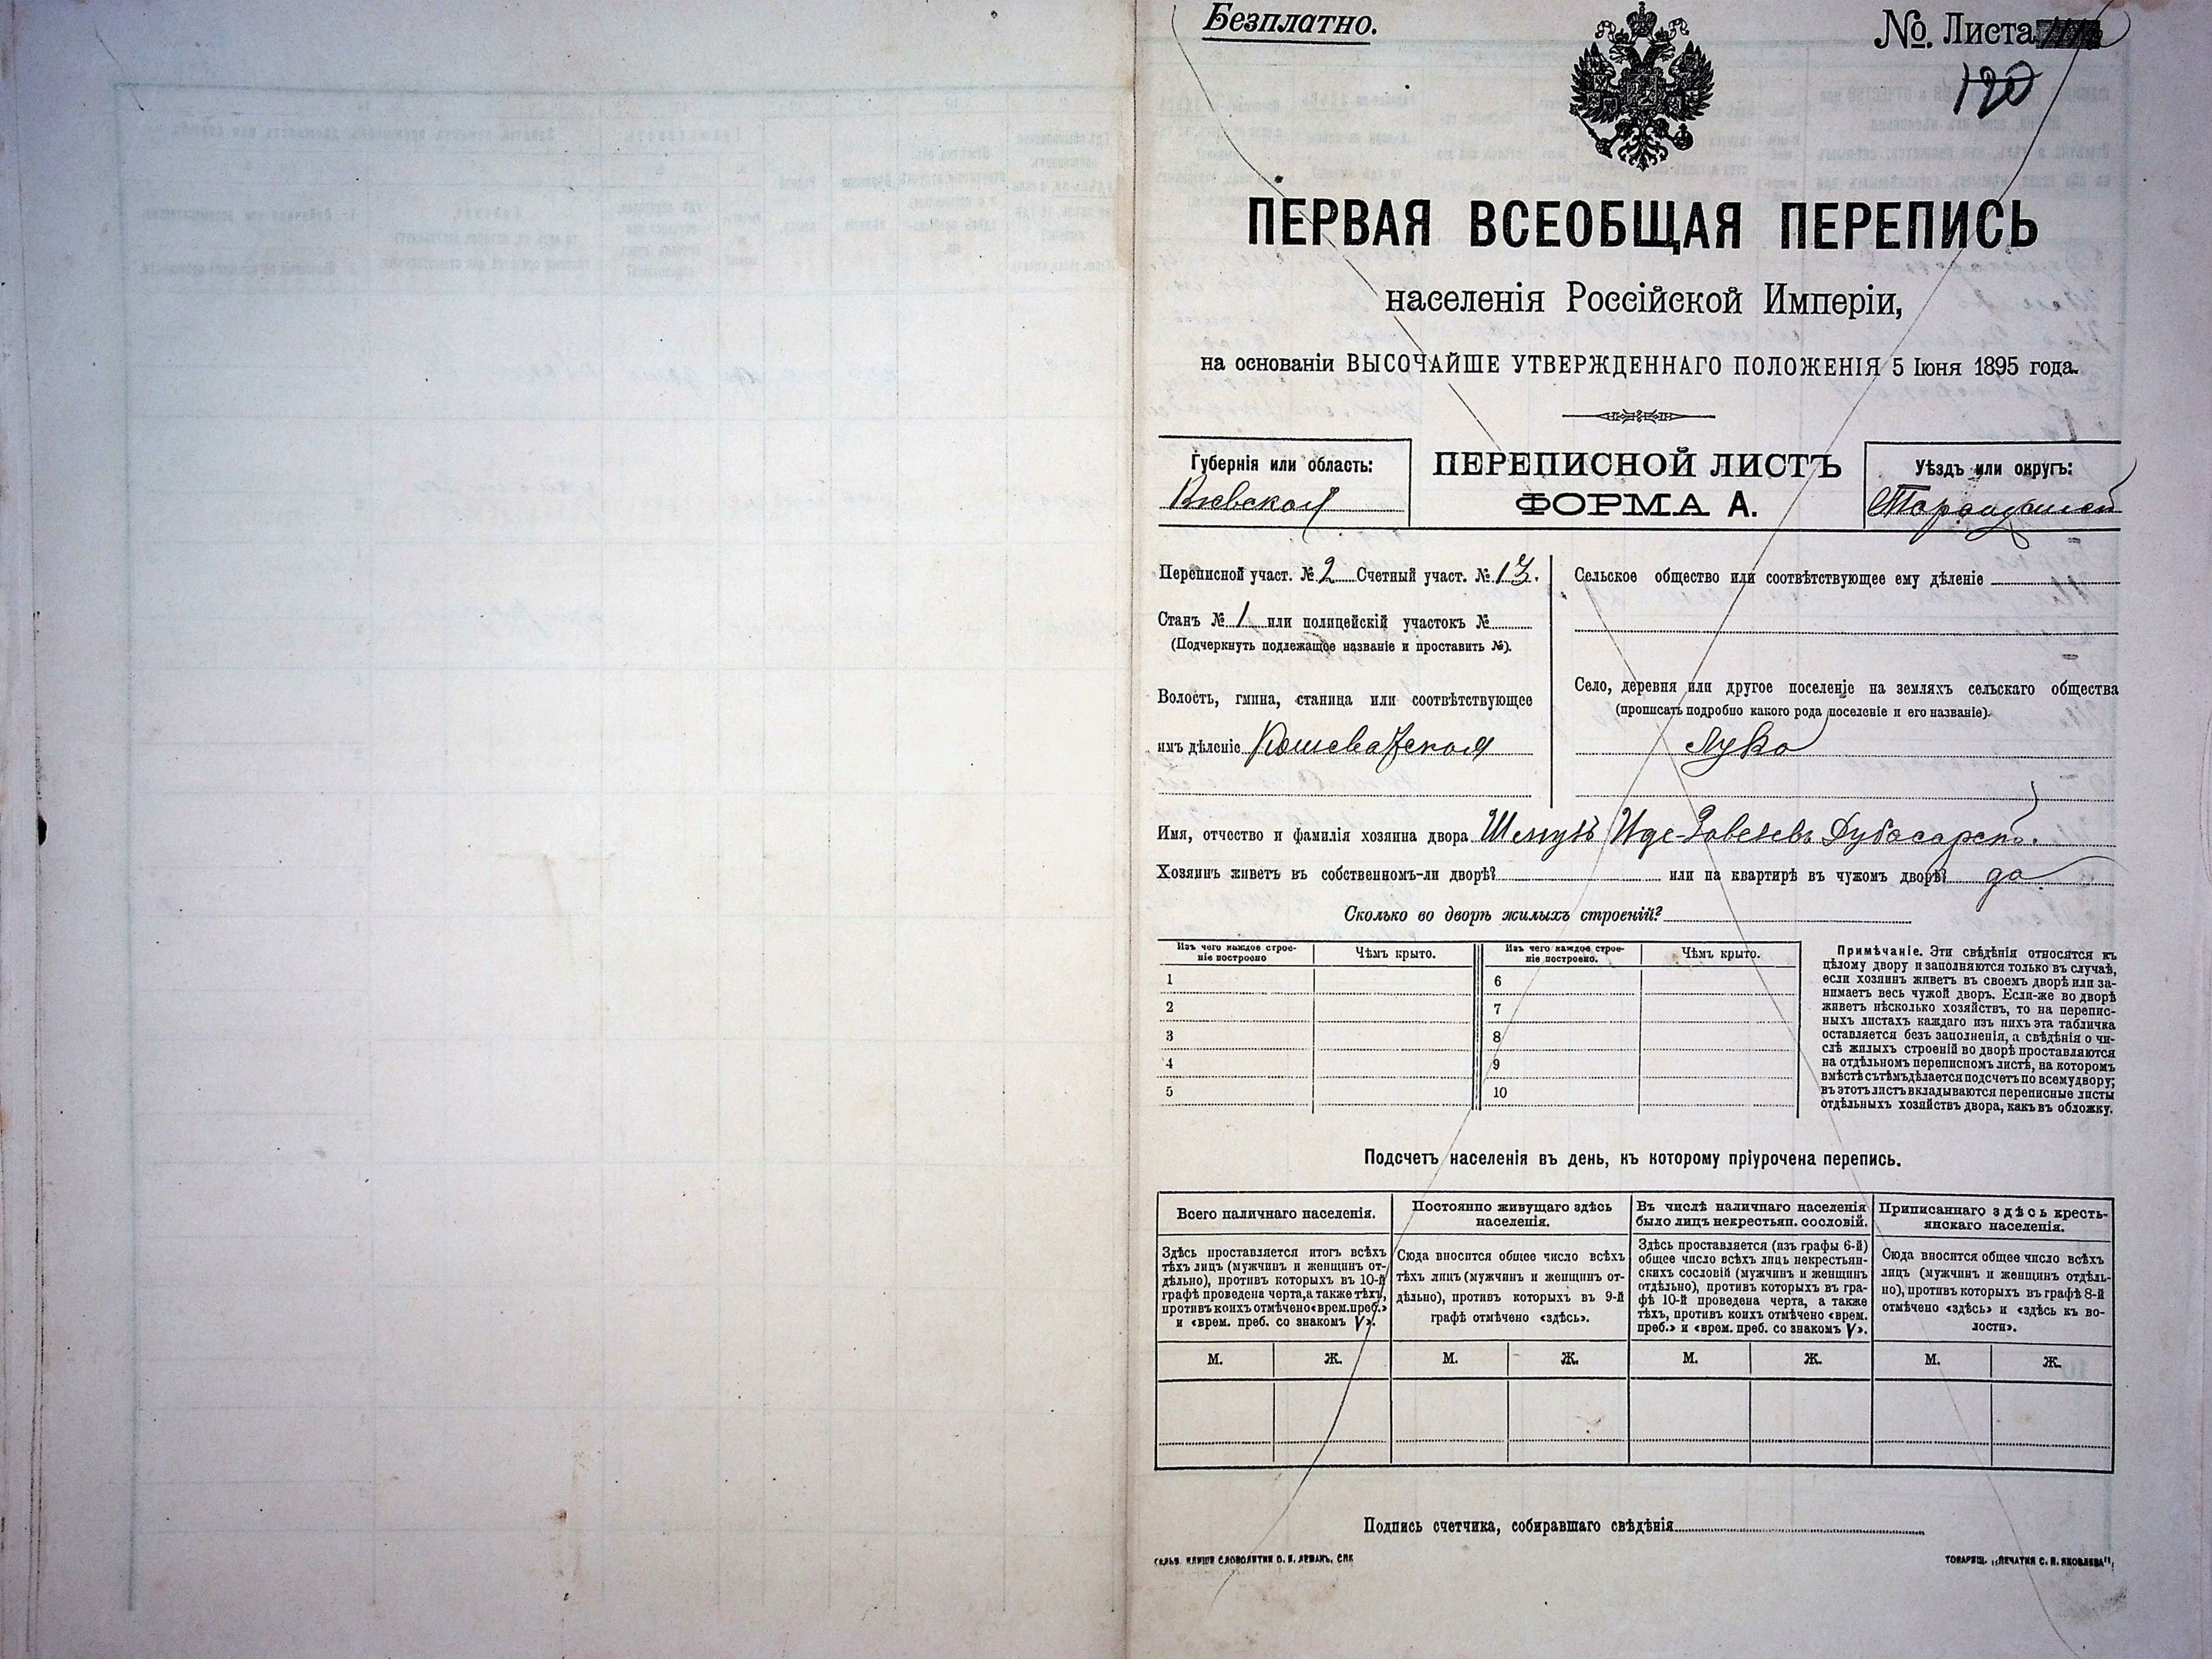 Безплатно.
№. Листа
120
ПЕРВАЯ ВСЕОБЩАЯ ПЕРЕПИСЬ
населенія Россійской Имперіи,
на основаніи ВЫСОЧАЙШЕ УТВЕРЖДЕННАГО ПОЛОЖЕНІЯ 5 Іюня 1895 года.
Губернія или область:
Кіевская
ПЕРЕПИСНОЙ ЛИСТЪ
ФОРМА А.
Уѣздъ или округъ:
Переписной участ. № 2 Счетный участ. № 13.
Станъ № 1 или полицейскій участокъ №
(Подчеркнуть подлежащее названіе и проставить №).
Волость, гмина, станица или соотвѣтствующее
имъ дѣленіе Кошеватская
Сельское общество или соотвѣтствующее ему дѣленіе
Село, деревня или другое поселеніе на земляхъ сельскаго общества
(прописать подробно какого рода поселеніе и его названіе).
Лука
Имя, отчество и фамилія хозяина двора Шмуль Иде-Зовелевъ Дубосарск.
Хозяинъ живетъ въ собственномъ-ли дворѣ? или на квартирѣ въ чужомъ дворѣ? да
Сколько во дворѣ жилыхъ строеній?
Изъ чего каждое строе-
ніе построено
Чѣмъ крыто.
Изъ чего каждое строе-
ніе построено.
Чѣмъ крыто.
1 6
2 7
3 8
4 9
5 10
Примѣчаніе. Эти свѣдѣнія относятся къ
цѣлому двору и заполняются только въ случаѣ,
если хозяинъ живетъ въ своемъ дворѣ или за-
нимаетъ весь чужой дворъ. Если-же во дворѣ
живетъ нѣсколько хозяйствъ, то на перепис-
ныхъ листахъ каждаго изъ нихъ эта табличка
оставляется безъ заполненія, а свѣдѣнія о чи-
слѣ жилыхъ строеній во дворѣ проставляются
на отдѣльномъ переписномъ листѣ, на которомъ
вмѣстѣ съ тѣмъ дѣлается подсчетъ по всему двору;
въ этотъ листъ вкладываются переписные листы
отдѣльныхъ хозяйствъ двора, какъ въ обложку.
Подсчетъ населенія въ день, къ которому пріурочена перепись.
Всего наличнаго населенія.
Здѣсь проставляется итогъ всѣхъ
тѣхъ лицъ (мужчинъ и женщинъ от-
дѣльно), противъ которыхъ въ 10-й
графѣ проведена черта, а также тѣхъ,
противъ коихъ отмѣчено «врем. преб.»
и «врем. преб. со знакомъ V».
Постоянно живущаго здѣсь
населенія.
Сюда вносится общее число всѣхъ
тѣхъ лицъ (мужчинъ и женщинъ от-
дѣльно), противъ которыхъ въ 9-й
графѣ отмѣчено «здѣсь».
Въ числѣ наличнаго населенія
было лицъ некрестьян. сословій.
Здѣсь проставляется (изъ графы 6-й)
общее число всѣхъ лицъ некрестьян-
скихъ сословій (мужчинъ и женщинъ
отдѣльно), противъ которыхъ въ гра-
фѣ 10-й проведена черта, а также
тѣхъ, противъ коихъ отмѣчено «врем.
преб.» и «врем. преб. со знакомъ V».
Приписаннаго здѣсь кресть-
янскаго населенія.
Сюда вносится общее число всѣхъ
лицъ (мужчинъ и женщинъ отдѣль-
но), противъ которыхъ въ графѣ 8-й
отмѣчено «здѣсь» и «здѣсь къ во-
лости».
М. Ж. М. Ж. М. Ж. М. Ж.
Подпись счетчика, собиравшаго свѣдѣнія
ТОВАРИЩ. „ПЕЧАТНЯ С. П. ЯКОВЛЕВА“